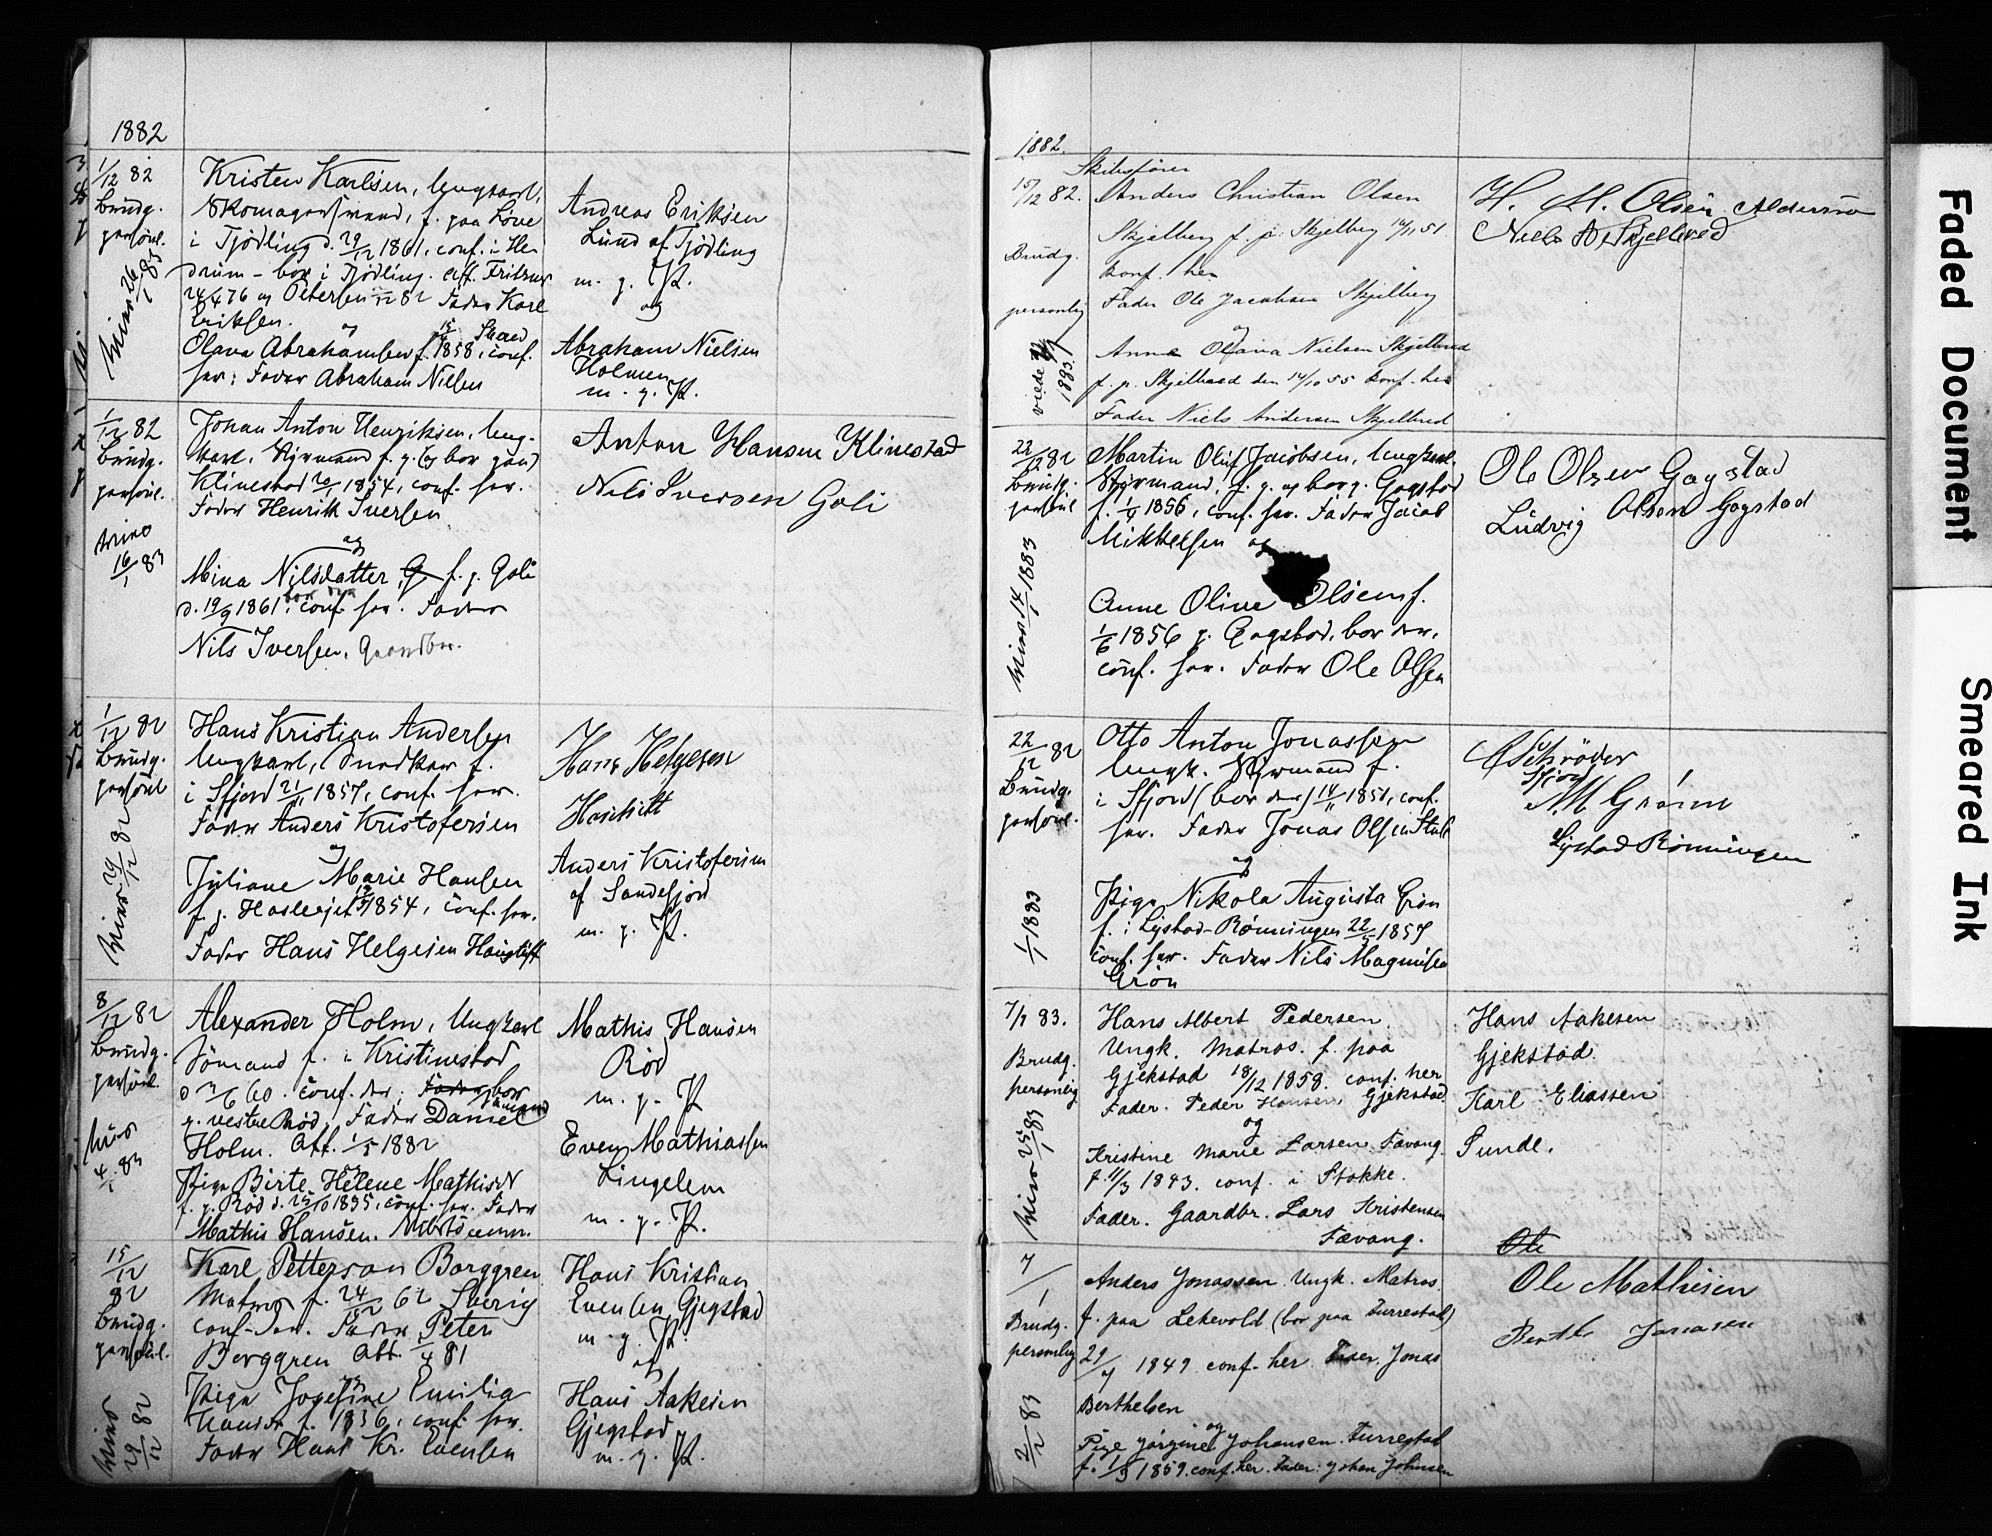 1882
1/12 82
Brudg.
personl.
Viede 26/1 83
Kristen Karlsen, Ungkarl,
Skomagersvend, f. paa Løve
i Tjødling d. 29/12 1861, conf. i He
drum - bor i Tjødling. Att. Fritzner
24/4 76 og Petersen 82 Fader Karl
Eriksen.
og
Olava Abrahamsen f. 15 1858, conf.
her: Fader Abraham Nielsen
Andreas Eriksen
Lund af Tjødling
m. p. P.
og
Abraham Nielsen
Holmen
m. p. P.
1/12 82
Brudg.
personl.
Viede
16/1 83
Johan Anton Henriksen, Ung-
karl. Styrmand f. p. (og bor paa)
Klinestad 1854, conf. her.
Fader Henrik Iversen
og
Mina Nilsdatter f. p. Goli
bor der
d. 19/9 1861. conf. her. Fader
Nils Iversen, Gaardbr.
Anton Hansen Klinestad
Nils Iversen Goli
1/12 82
Brudg.
personl.
Viede 29/12 82
Hans Kristian Andersen
Ungkarl, Snedker f.
i Sfjord 21/11 1857, conf. her.
Fader Anders Kristofersen
og
Juliane Marie Hansen
f. p. 1854, conf. her.
Fader Hans Helgesen
Hans Helgesen
Anders Kristofersen
af Sandefjord
m. p. P.
8/12 82
Brudg.
personl.
Viede
4/1 83
Alexander Holm, Ungkarl
Sømand f. i Kristinestad
d 3/6 60. conf. der, Fader bor
p. vestre Rød, Fader Daniel
Holm. Att. 1/5 1882
og
Pige Birte Helene Mathisd
f. p. Rød d. 25/10 1835, conf. her. Fader
Mathis Hansen.
Mathis Hansen
Rød
m. p. P
Even Mathiassen
Lingelem
m. p. P.
15/12
82
Brudg.
personl.
Viede
29/12 82
Karl Petterson Borggren
Matros f. 24/12 62 Sverig
conf. der. Fader Peter
Berggren Att. 81
og
Pige Josefine Emilia
Hansen f. 1836, conf. her.
Fader Hans Kr. Evensen
Hans Kristian
Evensen Gjegstad
m. p. P.
og
Hans Aakesen
Gjegstad
m. p. P.
1882.
15/12 82.
Brudg.
personlig
viede
1883
Skibsfører
Anders Christian Olsen
Skjelberg f. p. Skjelberg 14/11 51
konf. her
Fader Ole Jacobsen Skjelberg
og
Anna Olava Nielsen Skjelbred
f. p. Skjelbred den 14/10 55 konf. her
Fader Niels Andersen Skjelbred
H. M. Olsen
Niels A. Skjelbred
22/12 82
Brudg.
personl
Viede 14/1 1883
Martin Oluf Jacobsen, Ungkarl.
Styrmand, f. p. og bor p. Gogstad
f. 1856, conf. her. Fader Jacob
Mikkelsen og
Anne Olive Olsen f.
1/6 1856 p. Gogstad, bor der,
conf. her. Fader Ole Olsen
Ole Olsen Gogstad
Ludvig Olsen Gogstad
22/12 82
Brudg.
personl.
1/1 1883
Otto Anton Jonassen
Ungk. Styrmand f.
i Sfjord (bor der) 14/11 1851, conf.
her. Fader Jonas Olsen Stub
og
Pige Nikola Augusta Grøn
f. i Lystad-Rønningen 22/5 1857
conf. her. Fader Nils Magnusen
Grøn
Schrøder
Sfjord
N. M. Grøn
Lystad Rønningen
7/1 83.
Brudg.
personlig
Viede 25/1 83
Hans Albert Pedersen
Ungk. Matros. f. paa
Gjekstad 18/12 1858. conf. her
Fader. Peder Hansen, Gjekstad
og
Kristine Marie Larsen Favang.
f. 11/3 1843. conf. i Stokke.
Fader. Gaardbr. Lars Kristensen
Fævang.
Hans Aakesen
Gjekstad.
Karl Eliassen
Sunde.
7/1
Brudg.
personlig
2/2 83
Anders Jonassen. Ungk. Matros.
f. paa Lekevold (bor paa Furrestad)
29/4 1849. conf. her. Fader. Jonas
Berthelsen
og
Pige Jørgine Johansen. Furrestad
f. 1859. conf. her. Fader: Johan Johnsen
Ole
Ole Mathisen
Berthe Jonasen
Faded Document
Smeared Ink